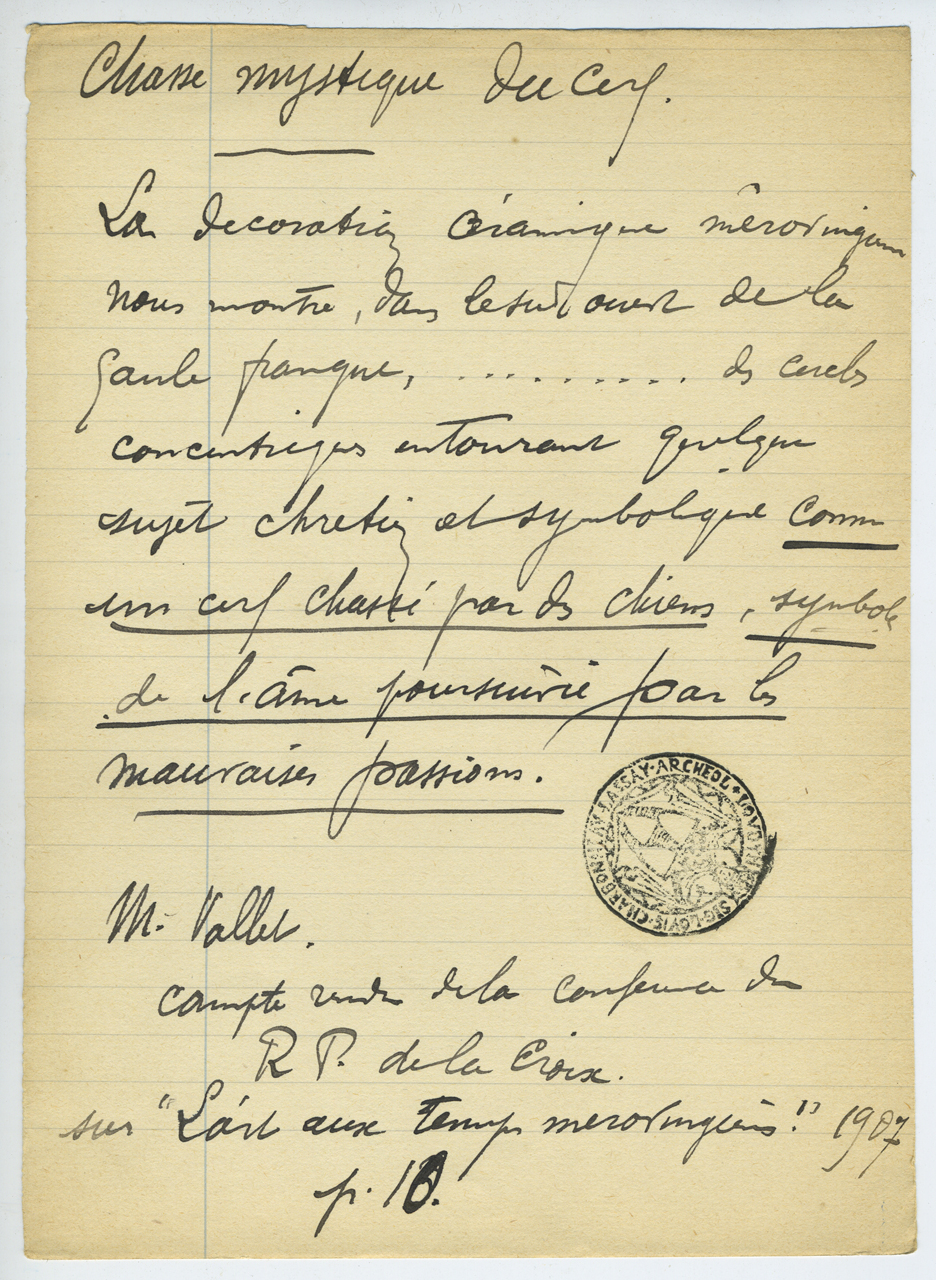 Chasse mystique du Cerf.
La decoration céramique mérovingienne
nous montre, dans le sud ouest de la
Gaule franque, .......... des cercles
concentriques entourant quelque
sujet chretien et symbolique comme
un cerf chassé par des chiens, symbole
de l'âme poursuivie par les
mauvaises passions.
M. Vallet.
compte rendu de la conference du
R P. de la Croix.
sur "L'art aux temps merovingiens." 1907
p. 10.
LASSAY·ARCHEOL + SIG·LOVIS·CHARBON